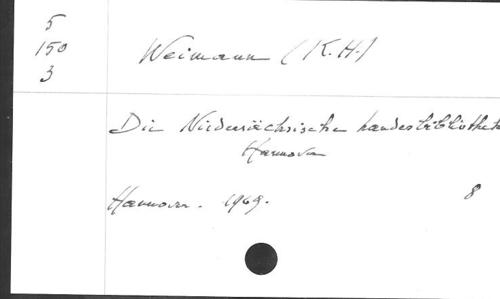 5
150
3
Weimann (K.H.)
Die Niedersächsische Landesbibliothek
Hannover
Hannover. 1969. 8